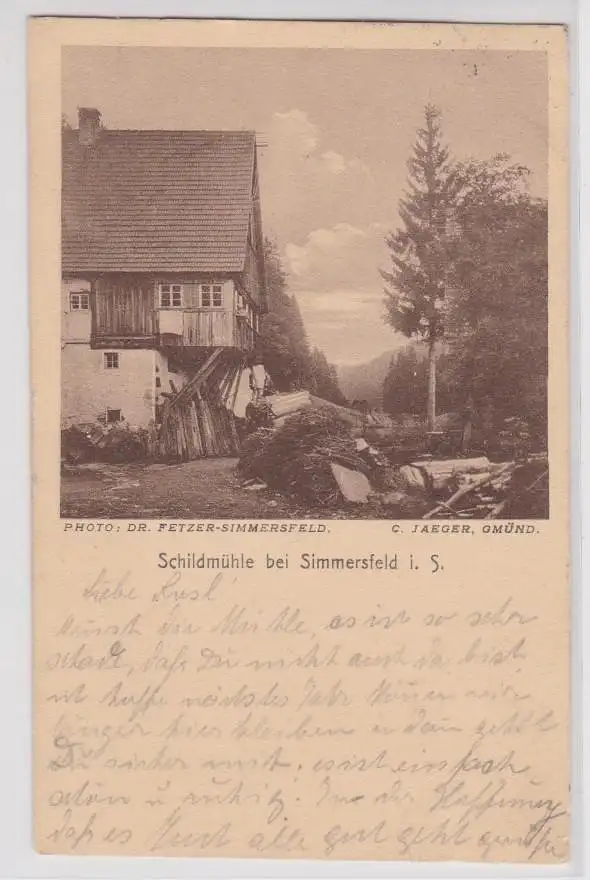 PHOTO: DR. FETZER-SIMMERSFELD. C. JAEGER, GMÜND.
Schildmühle bei Simmersfeld i. S.
Liebe Lusl!
die Mühle, es ist so sehr
schad, daß Du nicht auch da bist
ich hoffe nächstes Jahr können wir
länger hier bleiben u dann gehst
Du sicher mit. es ist einfach
schön u ruhig. In der Hoffnung
daß es Euch alle gut geht